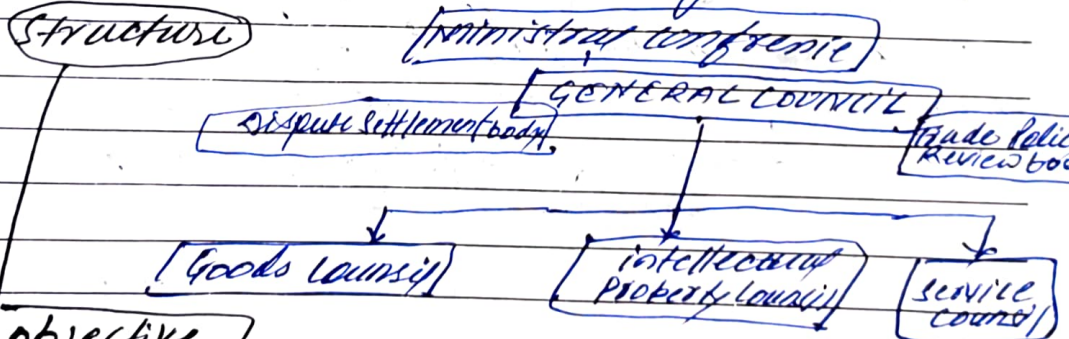 Structure
Ministrial confrenie
GENERAL COUNCIL
Dispute Settlement body
Trade Polic
Review bod
Goods Counsil
intellectual
Property Counsil
Service
Counsil
objective